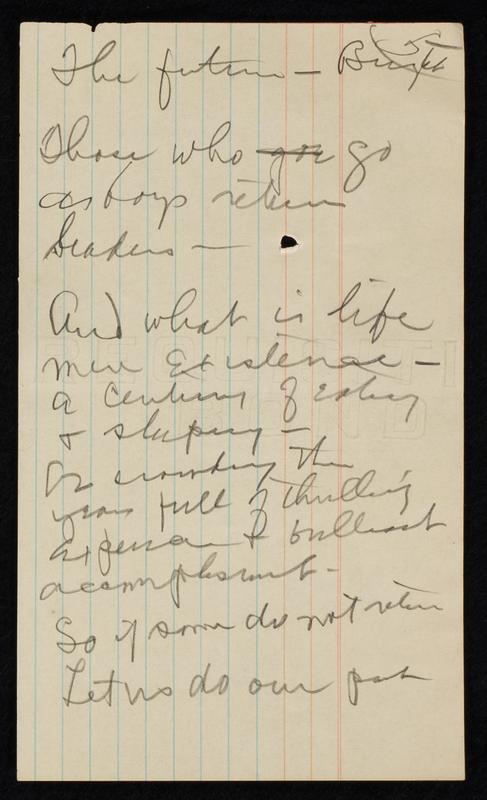 The future — Bright
Those who you go
as boys return
leaders —
And what is life
mere Existence —
a century of eating
& sleeping —
Or crowding the
years full of thrilling
experience & brilliant
accomplishment -
So if some do not return
Let us do our part